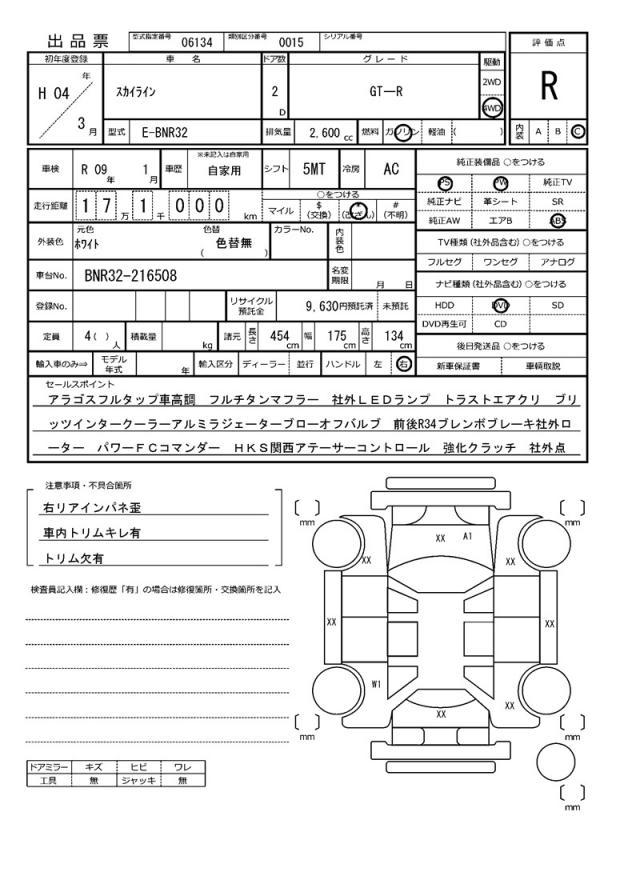 出品票 型式指定番号 06134 類別区分番号 0015 シリアル番号
評価点
R
内装 A B C
初年度登録 車名 ドア数 グレード 駆動
H 04 年 3 月 スカイライン 2 D GT-R 2WD 4WD
型式 E-BNR32 排気量 2,600 cc 燃料 ガソリン 軽油 ( )
車検 R 09 年 1 月 車歴 ※未記入は自家用 自家用 シフト 5MT 冷房 AC
走行距離 1 7 万 1 千 0 0 0 km ○をつける
マイル $ (交換) * (改ざん) # (不明)
外装色 元色 ホワイト 色替 ( 色替無 ) カラーNo. 内装色
車台No. BNR32-216508 名変期限 月 日
登録No. リサイクル預託金 9,630円預託済 未預託
定員 4( ) 人 積載量 kg 諸元 長さ 454 cm 幅 175 cm 高さ 134 cm
輸入車のみ⇒ モデル年式 年 輸入区分 ディーラー 並行 ハンドル 左 右
純正装備品 ○をつける
PS PW 純正TV
純正ナビ 革シート SR
純正AW エアB ABS
TV種類(社外品含む)○をつける
フルセグ ワンセグ アナログ
ナビ種類(社外品含む)○をつける
HDD DVD SD
DVD再生可 CD
後日発送品 ○をつける
新車保証書 車輌取説
セールスポイント
アラゴスフルタップ車高調 フルチタンマフラー 社外LEDランプ トラストエアクリ ブリ
ッツインタークーラーアルミラジエーターブローオフバルブ 前後R34ブレンボブレーキ社外ロ
ーター パワーFCコマンダー HKS関西アテーサーコントロール 強化クラッチ 社外点
注意事項・不具合箇所
右リアインパネ歪
車内トリムキレ有
トリム欠有
検査員記入欄:修復歴「有」の場合は修復箇所・交換箇所を記入
ドアミラー キズ ヒビ ワレ
工具 無 ジャッキ 無
[ ] mm [ ] mm
XX A1
XX XX
XX XX
W1 XX
XX
[ ] mm [ ] mm
[ ] mm